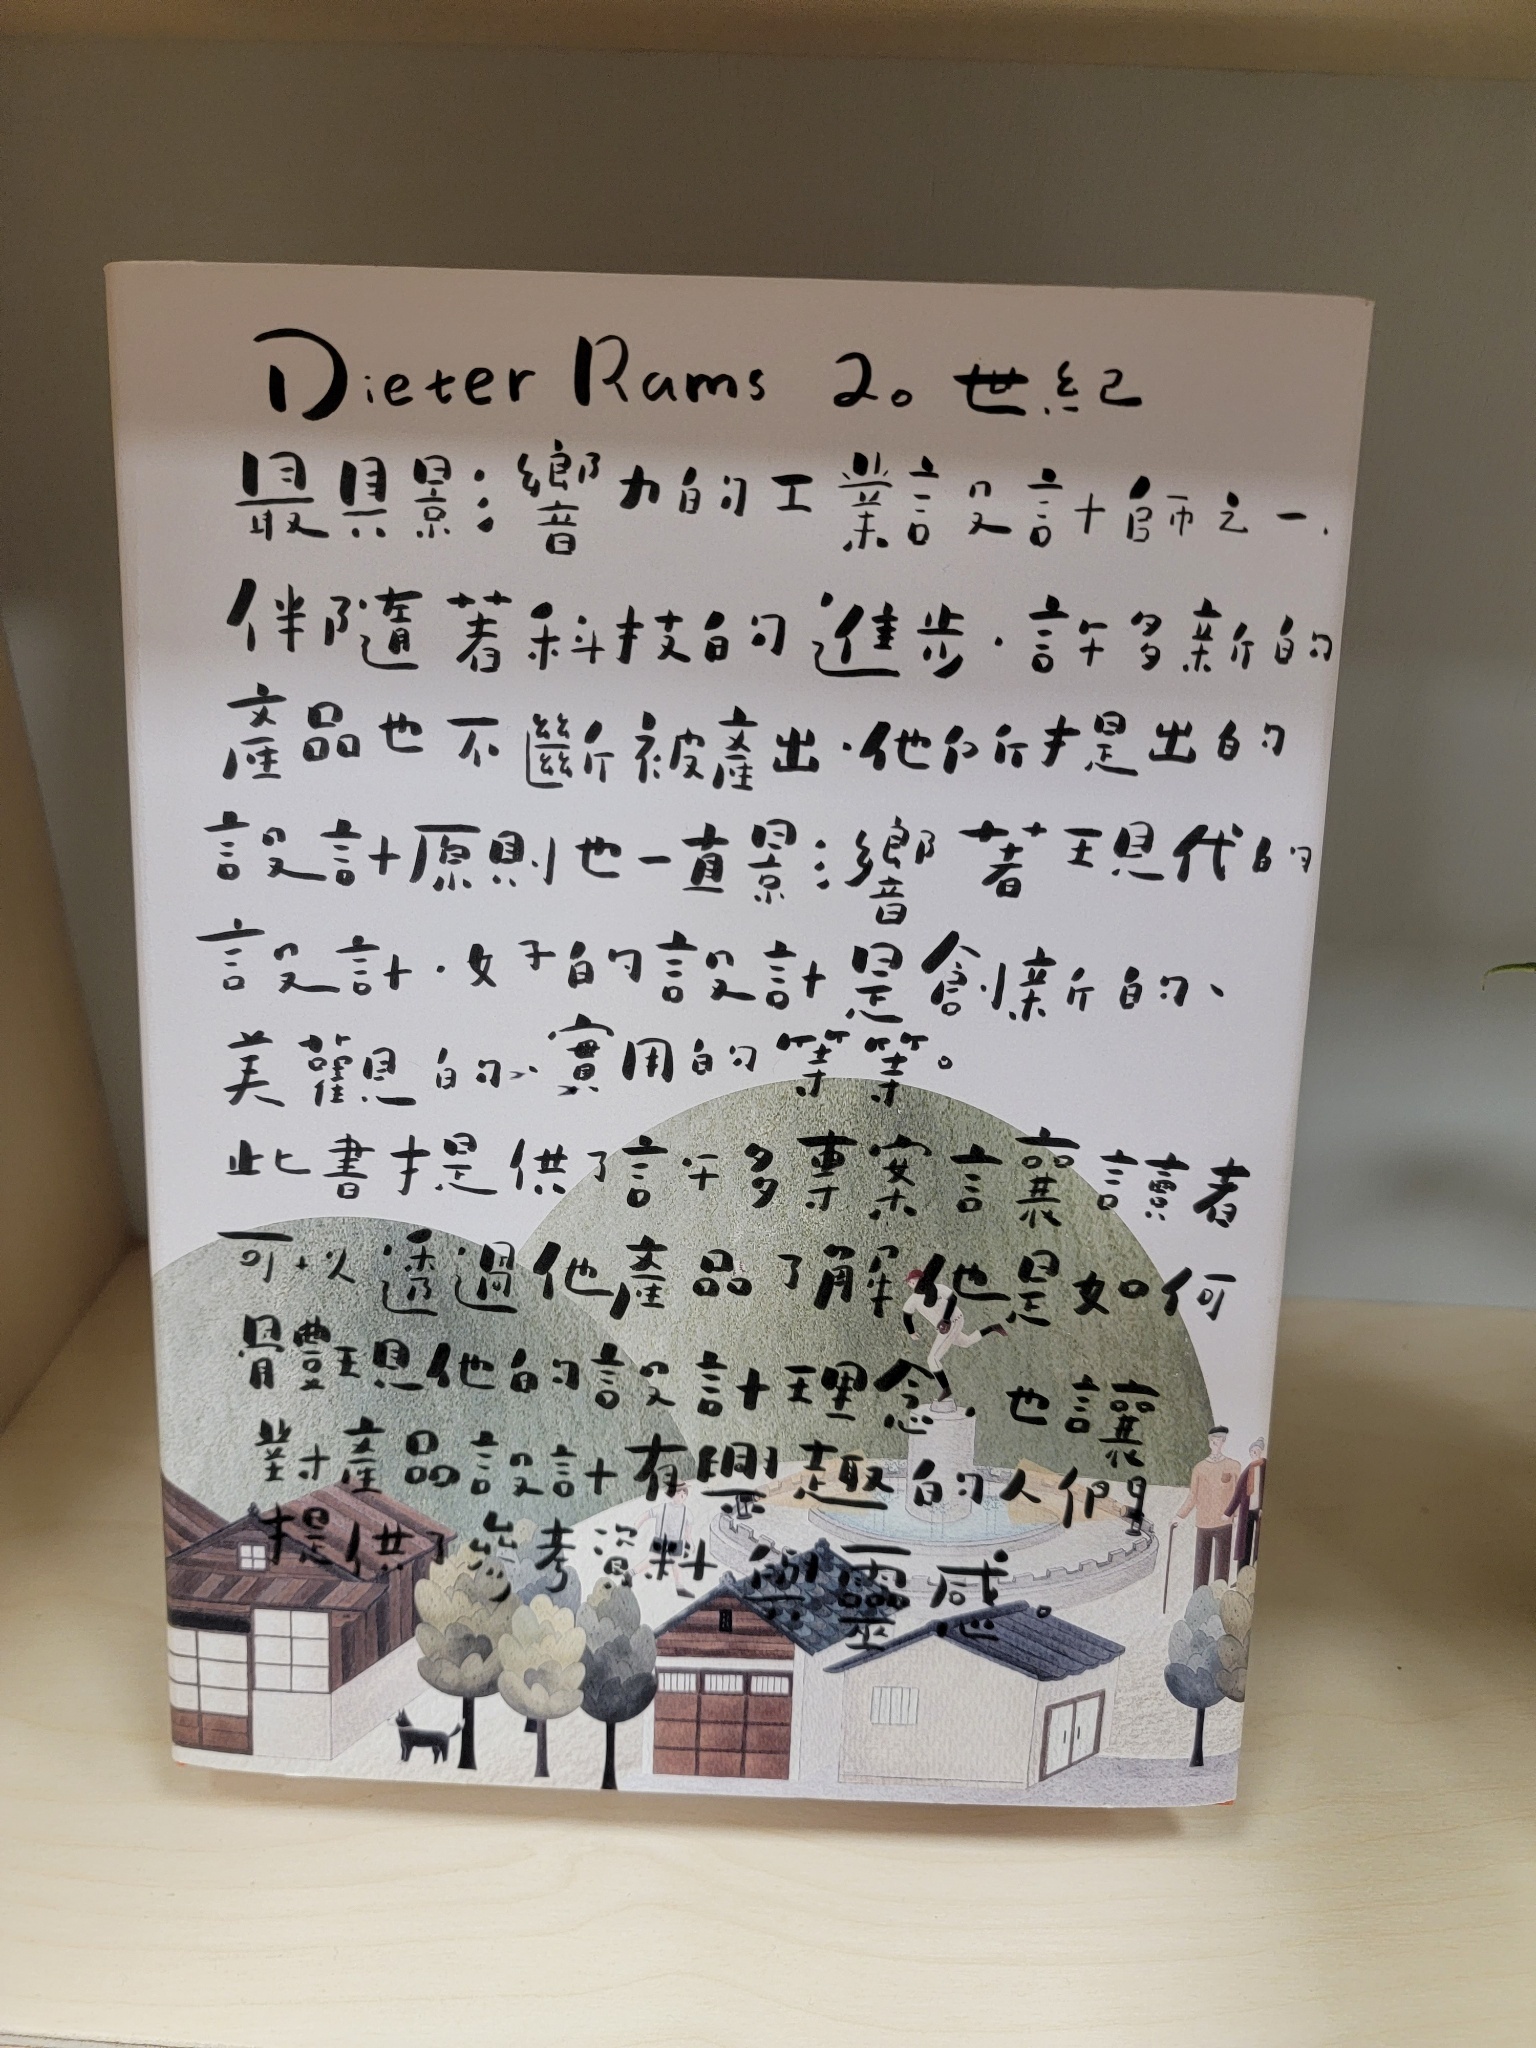 Dieter Rams 20世紀
最具影響力的工業設計師之一.
伴隨著科技的進步.許多新的
產品也不斷被產出.他所提出的
設計原則也一直影響著現代的
設計.好的設計是創新的、
美觀的、實用的等等。
此書提供了許多專案讓讀者
可以透過他產品了解他是如何
體現他的設計理念.也讓
對產品設計有興趣的人們
提供了參考資料與靈感。